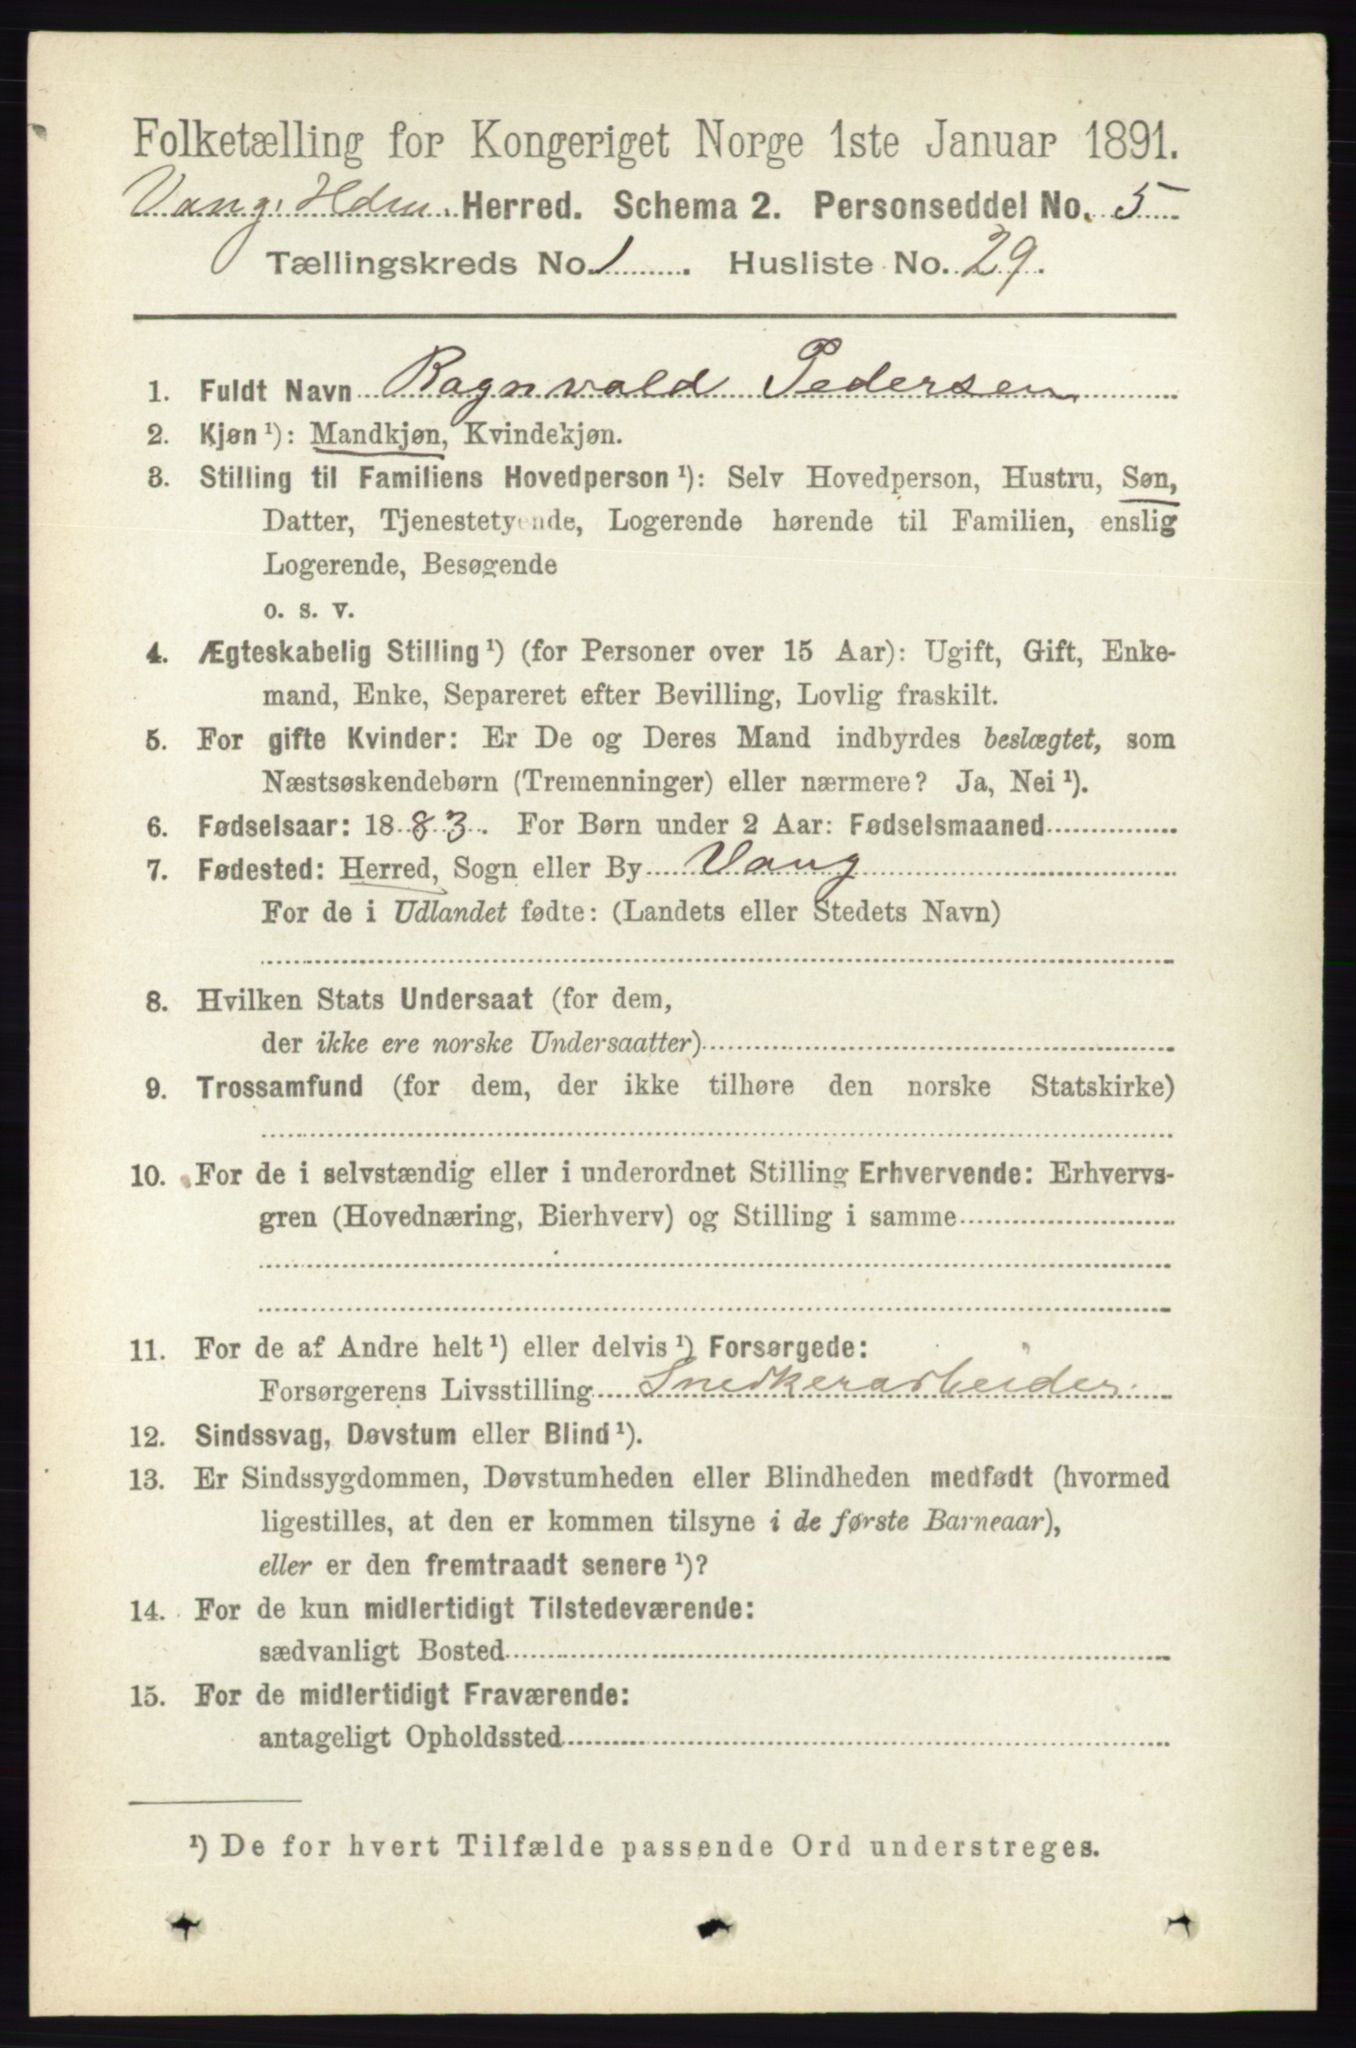 Folketælling for Kongeriget Norge 1ste Januar 1891.
Vang, Hdm. Herred. Schema 2. Personseddel No. 5
Tællingskreds No. 1. Husliste No. 29.
1. Fuldt Navn Ragnvald Pedersen
2. Kjøn ¹): Mandkjøn, Kvindekjøn.
3. Stilling til Familiens Hovedperson ¹): Selv Hovedperson, Hustru, Søn,
Datter, Tjenestetyende, Logerende hørende til Familien, enslig
Logerende, Besøgende
o. s. v.
4. Ægteskabelig Stilling ¹) (for Personer over 15 Aar): Ugift, Gift, Enke-
mand, Enke, Separeret efter Bevilling, Lovlig fraskilt.
5. For gifte Kvinder: Er De og Deres Mand indbyrdes beslægtet, som
Næstsøskendebørn (Tremenninger) eller nærmere? Ja, Nei ¹).
6. Fødselsaar: 1883. For Børn under 2 Aar: Fødselsmaaned
7. Fødested: Herred, Sogn eller By Vang
For de i Udlandet fødte: (Landets eller Stedets Navn)
8. Hvilken Stats Undersaat (for dem,
der ikke ere norske Undersaatter)
9. Trossamfund (for dem, der ikke tilhøre den norske Statskirke)
10. For de i selvstændig eller i underordnet Stilling Erhvervende: Erhvervs-
gren (Hovednæring, Bierhverv) og Stilling i samme
11. For de af Andre helt ¹) eller delvis ¹) Forsørgede:
Forsørgerens Livsstilling Snedkerarbeider.
12. Sindssvag, Døvstum eller Blind ¹).
13. Er Sindssygdommen, Døvstumheden eller Blindheden medfødt (hvormed
ligestilles, at den er kommen tilsyne i de første Barneaar),
eller er den fremtraadt senere ¹)?
14. For de kun midlertidigt Tilstedeværende:
sædvanligt Bosted
15. For de midlertidigt Fraværende:
antageligt Opholdssted
¹) De for hvert Tilfælde passende Ord understreges.